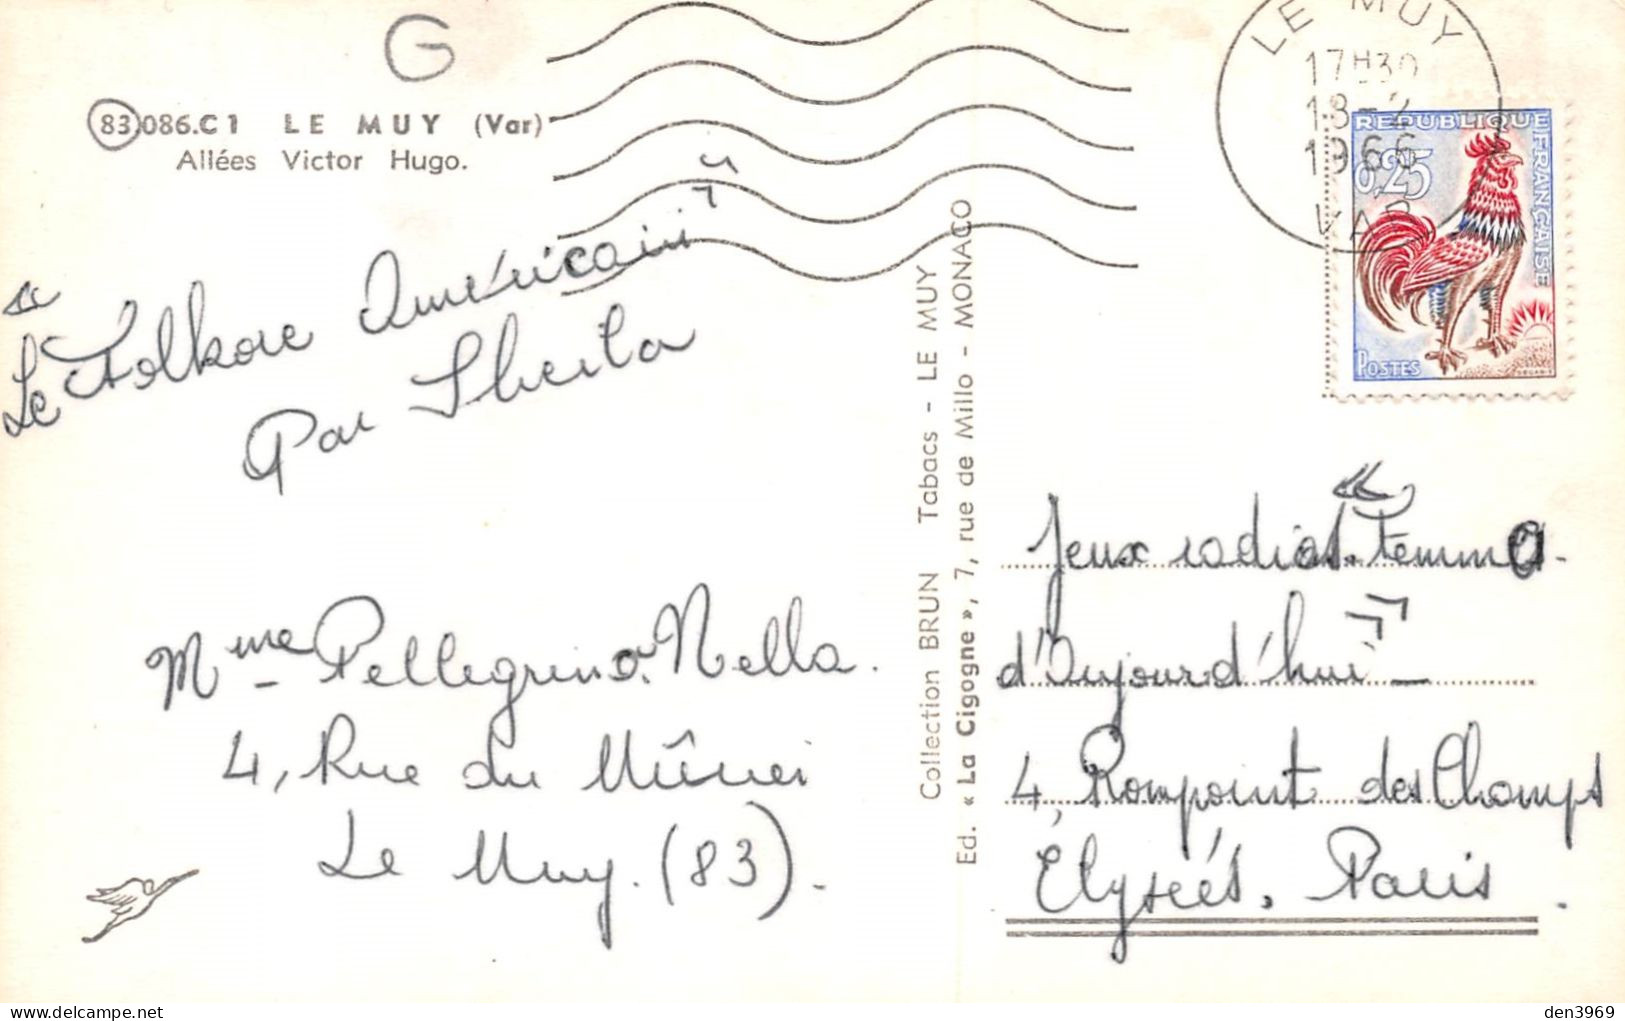 G
83 086.C1 LE MUY (Var)
Allées Victor Hugo.
« Le Folkore Américain »
Par Sheila
Mme Pellegrino Nella.
4, Rue du Mûrier
Le Muy. (83).
Collection BRUN Tabacs - LE MUY
Ed. « La Cigogne », 7, rue de Millo - MONACO
LE MUY
17H30
18-2
1966
VAR
REPUBLIQUE FRANÇAISE
0,25
POSTES
Jeux radios. « Femme
d'Aujourd'hui » -
4, Rompoint des Champs
Élyseés. Paris.
den3969